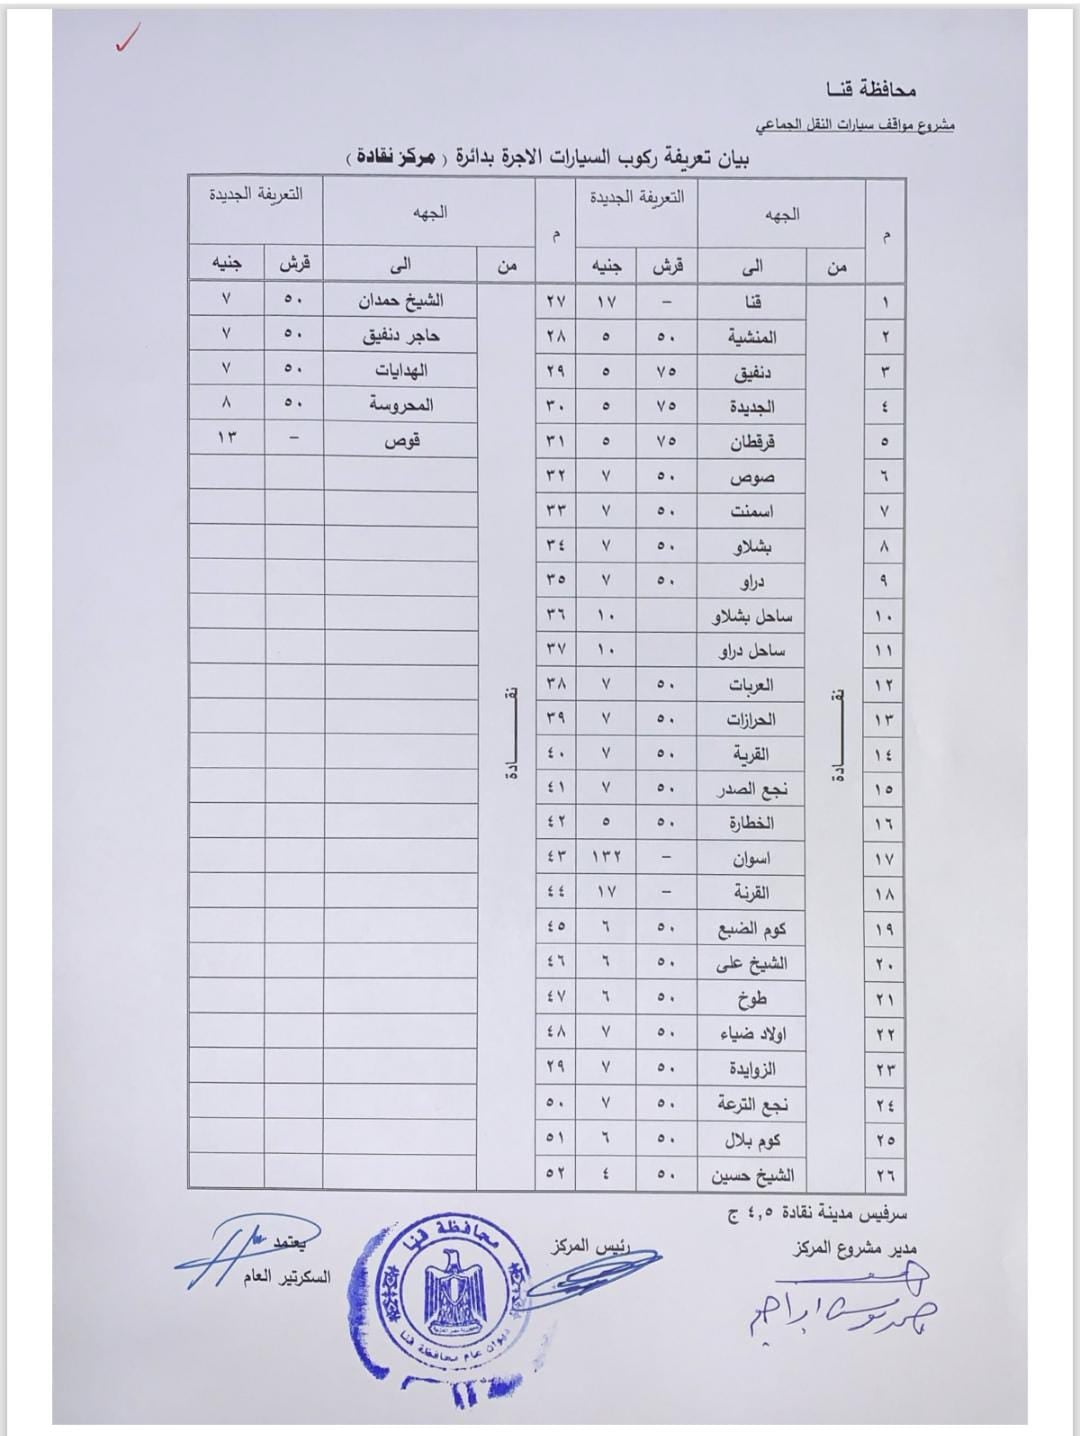 محافظة قنــا
مشروع مواقف سيارات النقل الجماعي
بيان تعريفة ركوب السيارات الاجرة بدائرة ( مركز نقادة )
م الجهه التعريفة الجديدة م الجهه التعريفة الجديدة
من الى قرش جنيه من الى قرش جنيه
١ قنا – ١٧ ٢٧ الشيخ حمدان ٥٠ ٧
٢ المنشية ٥٠ ٥ ٢٨ حاجر دنفيق ٥٠ ٧
٣ دنفيق ٧٥ ٥ ٢٩ الهدايات ٥٠ ٧
٤ الجديدة ٧٥ ٥ ٣٠ المحروسة ٥٠ ٨
٥ قرقطان ٧٥ ٥ ٣١ قوص – ١٣
٦ صوص ٥٠ ٧ ٣٢
٧ اسمنت ٥٠ ٧ ٣٣
٨ بشلاو ٥٠ ٧ ٣٤
٩ دراو ٥٠ ٧ ٣٥
١٠ ساحل بشلاو ١٠ ٣٦
١١ ساحل دراو ١٠ ٣٧
١٢ العربات ٥٠ ٧ ٣٨
نقــــــادة نقــــــادة
١٣ الحرازات ٥٠ ٧ ٣٩
١٤ القرية ٥٠ ٧ ٤٠
١٥ نجع الصدر ٥٠ ٧ ٤١
١٦ الخطارة ٥٠ ٥ ٤٢
١٧ اسوان – ١٣٢ ٤٣
١٨ القرنة – ١٧ ٤٤
١٩ كوم الضبع ٥٠ ٦ ٤٥
٢٠ الشيخ على ٥٠ ٦ ٤٦
٢١ طوخ ٥٠ ٦ ٤٧
٢٢ اولاد ضياء ٥٠ ٧ ٤٨
٢٣ الزوايدة ٥٠ ٧ ٢٩
٢٤ نجع الترعة ٥٠ ٧ ٥٠
٢٥ كوم بلال ٥٠ ٦ ٥١
٢٦ الشيخ حسين ٥٠ ٤ ٥٢
سرفيس مدينة نقادة ٤,٥ ج
مدير مشروع المركز رئيس المركز يعتمد
السكرتير العام
محافظة قنا
ديوان عام محافظة قنا